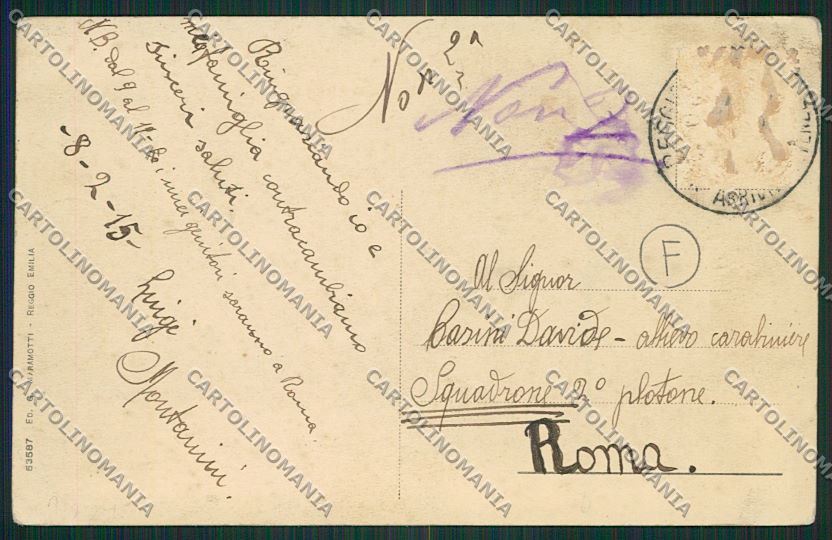 N.B. dal 9 al 12 i miei genitori saranno a Roma.
Ringraziando io e
mia famiglia contracambiamo
sinceri saluti.
-8-2-15-
Luigi
Montanini.
No
2ª
Non
ARRIVI
F
Al Signor
Casini Davide - allievo carabiniere
Squadrone 2º plotone.
Roma.
53587 ED. MARAMOTTI - REGGIO EMILIA
CARTOLINOMANIA